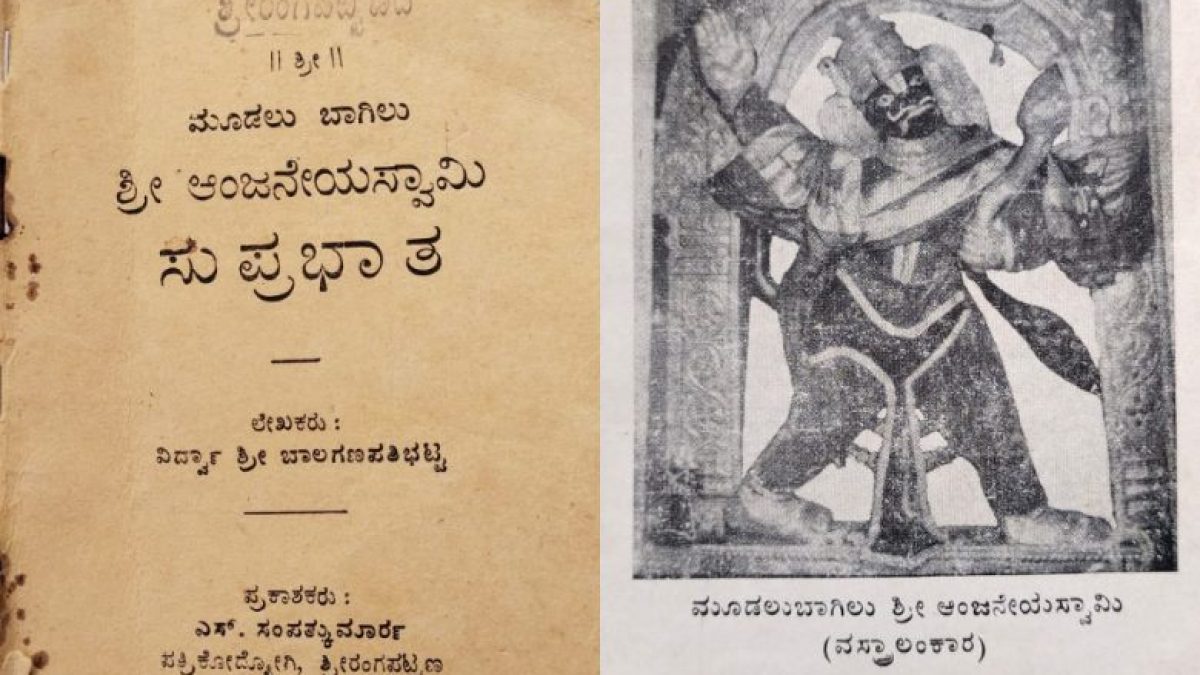 ಶ್ರೀರಂಗಪಟ್ಟಣದ
॥ ಶ್ರೀ ॥
ಮೂಡಲು ಬಾಗಿಲು
ಶ್ರೀ ಆಂಜನೇಯಸ್ವಾಮಿ
ಸುಪ್ರಭಾತ
ಲೇಖಕರು :
ವಿದ್ರ್ವಾ ಶ್ರೀ ಬಾಲಗಣಪತಿಭಟ್ಟ
ಪ್ರಕಾಶಕರು :
ಎಸ್. ಸಂಪತ್ಕುಮಾರ್ರ್
ಪತ್ರಿಕೋದ್ಯೋಗಿ, ಶ್ರೀರಂಗಪಟ್ಟಣ
ಮೂಡಲುಬಾಗಿಲು ಶ್ರೀ ಆಂಜನೇಯಸ್ವಾಮಿ
(ವಸ್ತ್ರಾಲಂಕಾರ)